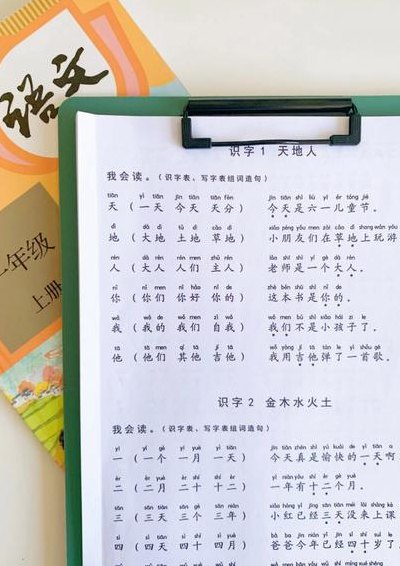 语文
一年级
上册
识字1 天地人
我会读。(识字表、写字表组词造句)
tiān yì tiān jīn tiān tiān fèn jīn tiān shì liù yī ér tóng jié
天(一天 今天 天分) 今天是六一儿童节.
dì dà dì tǔ dì cǎo dì xiǎo péng yǒu men zài cǎo dì shang wán yóu
地(大地 土地 草地) 小朋友们在草地上玩游
rén dà rén rén men zhǔ rén lǎo shī shì yí gè dà rén
人(大人 人们 主人) 老师是一个大人.
nǐ nǐ men nǐ hǎo nǐ de zhè běn shū shì nǐ de
你(你们 你好 你的) 这本书是你的.
wǒ wǒ de wǒ men zì wǒ wǒ men bú shì xiǎo hái zi le
我(我的 我们 自我) 我们不是小孩子了.
tā tā men qí tā jí tā wǒ yòng jí tā tán le yì shǒu gē
他(他们 其他 吉他) 我用吉他弹了一首歌.
识字2 金木水火土
我会读。(识字表、写字表组词造句)
yī yí gè yī yuè yì tiān jīn tiān zhēn shì yú kuài de yì tiān a
一(一个 一月 一天) 今天真是愉快的一天啊
èr èr yuè èr shí shí èr yì nián yǒu shí èr gè yuè
二(二月 二十 十二) 一年有十二个月.
sān sān tiān sān gè sān nián xiǎo hóng yǐ jīng sān tiān méi lái shàng kè
三(三天 三个 三年) 小红已经三天没来上课
sì sì tiān sì yuè sì shí bà ba jīn nián yǐ jīng sì shí suì le
四(四天 四月 四十) 爸爸今年已经四十岁了.